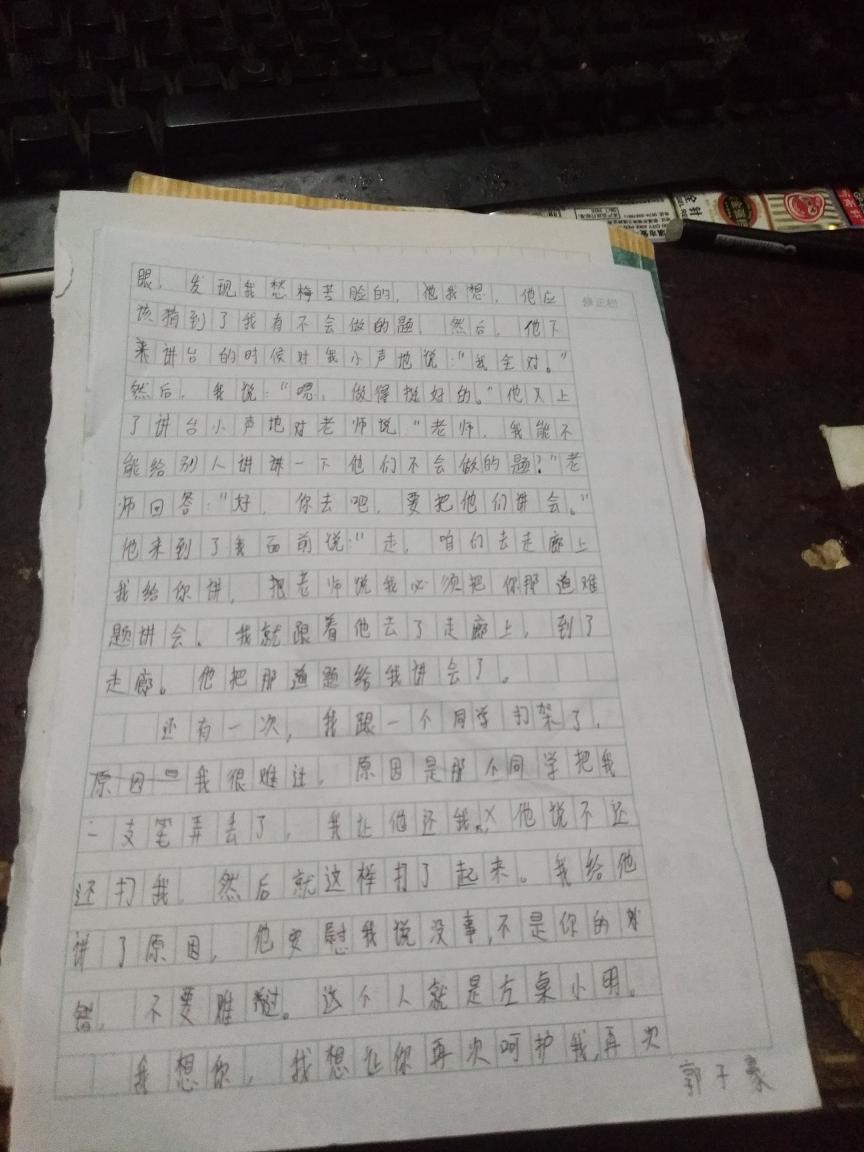 修正栏
眼，发现我愁梅苦脸的，他我想，他应
该猜到了我有不会做的题，然后，他下
来讲台的时候对我小声地说：“我全对。”
然后，我说：“嗯，做得挺好的。”他又上
了讲台小声地对老师说“老师，我能不
能给别人讲讲一下他们不会做的题？”老
师回答：“好，你去吧，要把他们讲会。”
他来到了我面前说：“走，咱们去走廊上
我给你讲，把老师说我必须把你那道难
题讲会。我就跟着他去了走廊上，到了
走廊。他把那道题给我讲会了。
还有一次，我跟一个同学打架了，
原因 我很难过，原因是那个同学把我
一支笔弄丢了，我让他还我，他说不还
还打我，然后就这样打了起来。我给他
讲了原因，他安慰我说没事，不是你的
错，不要难过。这个人就是左桌小明。
我想你，我想让你再次呵护我，再次
郭子豪